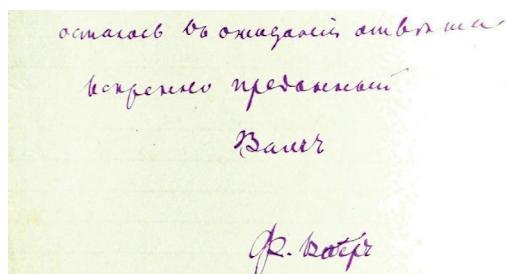 остаюсь въ ожиданіи отвѣта
искренно преданный
Вамъ
Ф.